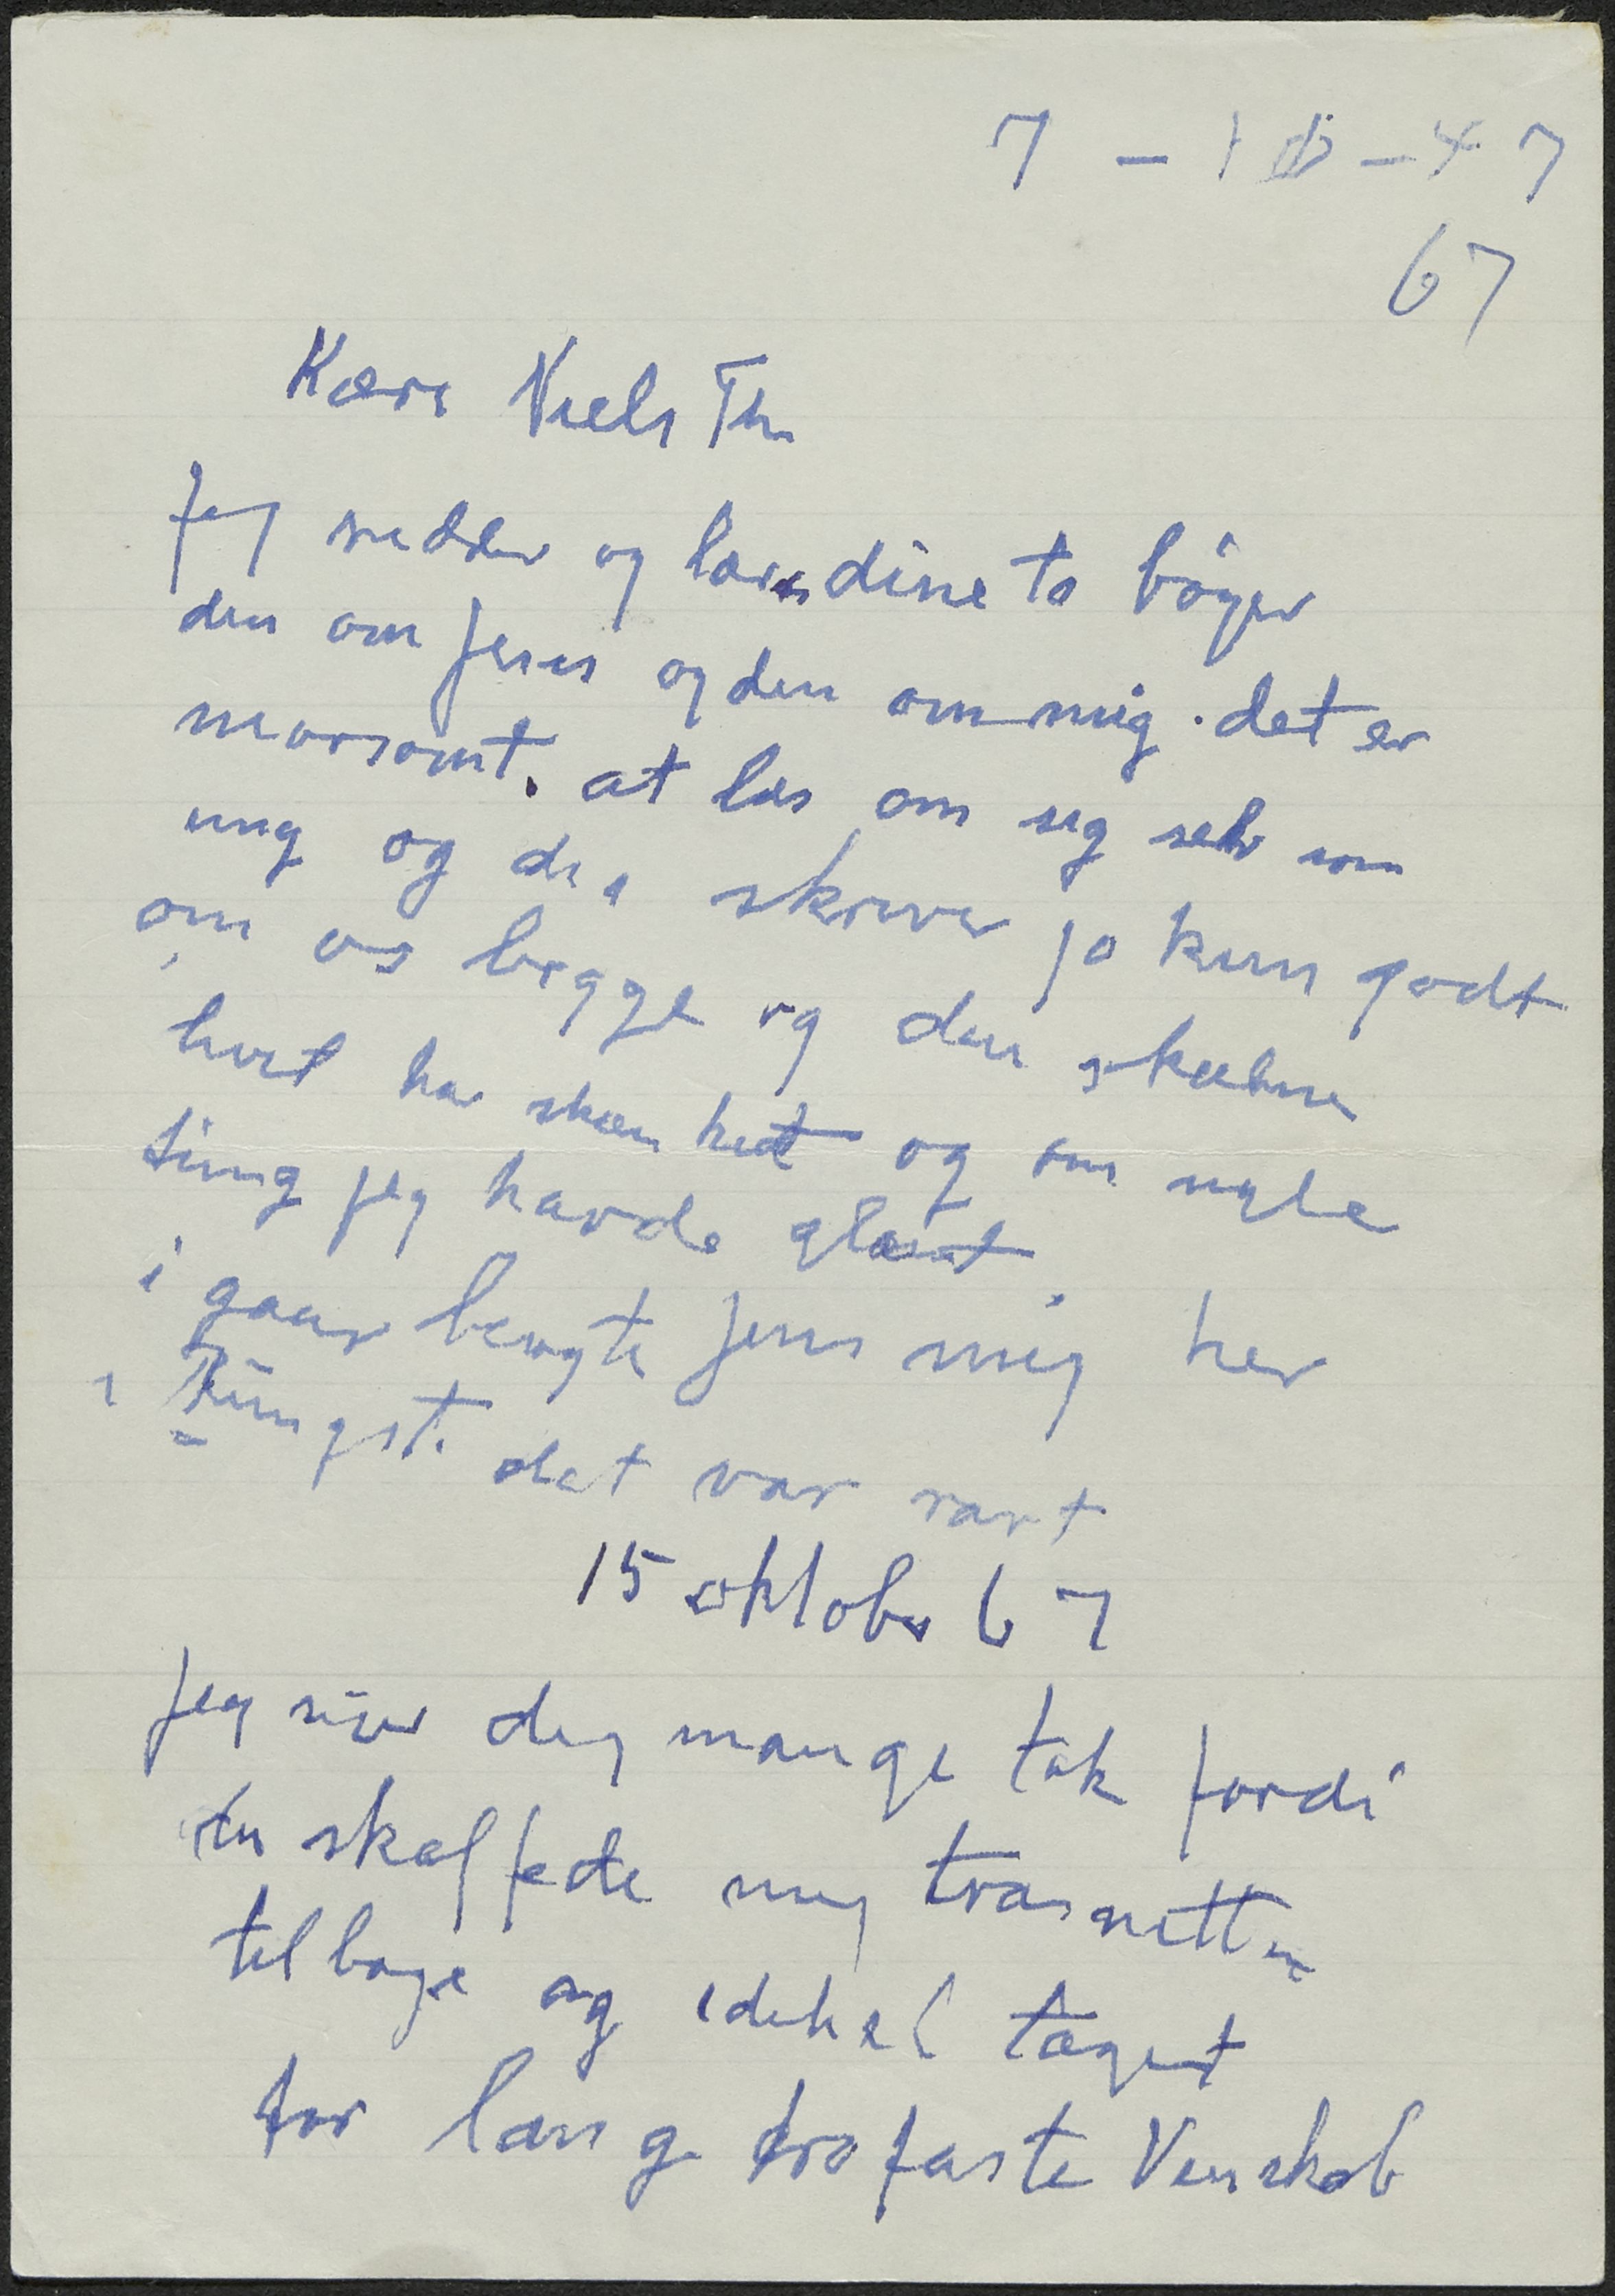 7 - 10 - 47
67
Kære Niels Th.
Jeg sidder og læser dine to bøger
den om Jens og den om mig. det er
morsomt. at læs om sig selv som
ung og du skriver jo kun godt
om os begge og den skæbne
livet har skænket og om nyle
ting jeg havde glemt
i gaar besøgte Jens mig her
i Rungst. det var rart
15 oktober 67
Jeg siger dig mange tak fordi
du skaffede mig træsnittene
tilbage og idehel taget
for lang trofaste Venskab